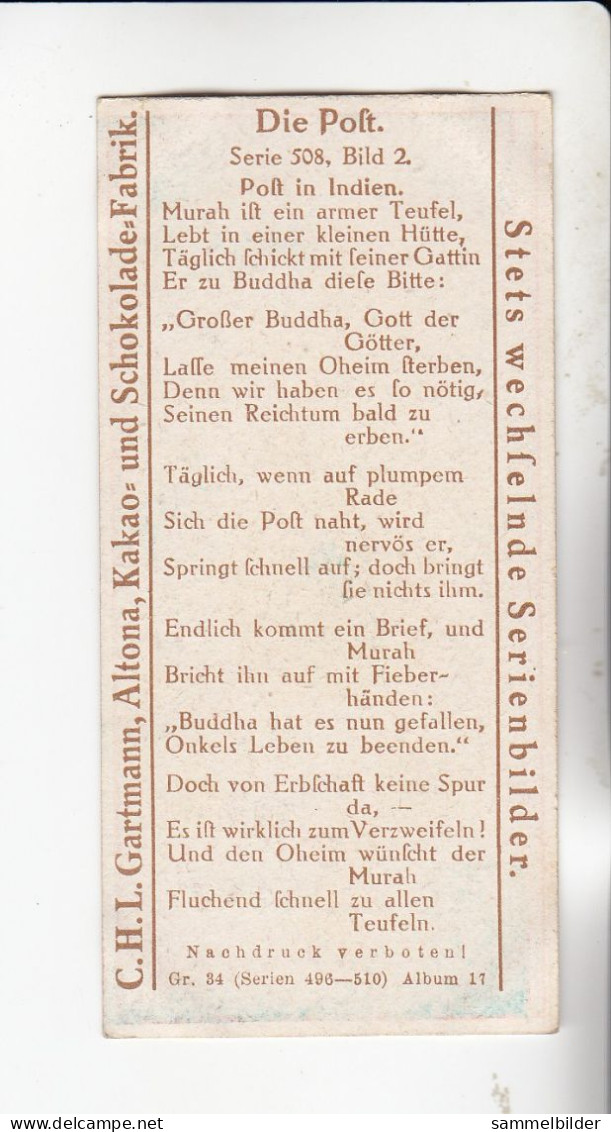 Die Poſt.
Serie 508, Bild 2.
Poſt in Indien.
Murah iſt ein armer Teufel,
Lebt in einer kleinen Hütte,
Täglich ſchickt mit ſeiner Gattin
Er zu Buddha dieſe Bitte:
„Großer Buddha, Gott der
Götter,
Laſſe meinen Oheim ſterben,
Denn wir haben es ſo nötig,
Seinen Reichtum bald zu
erben.“
Täglich, wenn auf plumpem
Rade
Sich die Poſt naht, wird
nervös er,
Springt ſchnell auf; doch bringt
ſie nichts ihm.
Endlich kommt ein Brief, und
Murah
Bricht ihn auf mit Fieber-
händen:
„Buddha hat es nun gefallen,
Onkels Leben zu beenden.“
Doch von Erbſchaft keine Spur
da, —
Es iſt wirklich zum Verzweifeln!
Und den Oheim wünſcht der
Murah
Fluchend ſchnell zu allen
Teufeln.
Nachdruck verboten!
Gr. 34 (Serien 496—510) Album 17
C. H. L. Gartmann, Altona, Kakao- und Schokolade-Fabrik.
Stets wechſelnde Serienbilder.
www.delcampe.net
sammelbilder